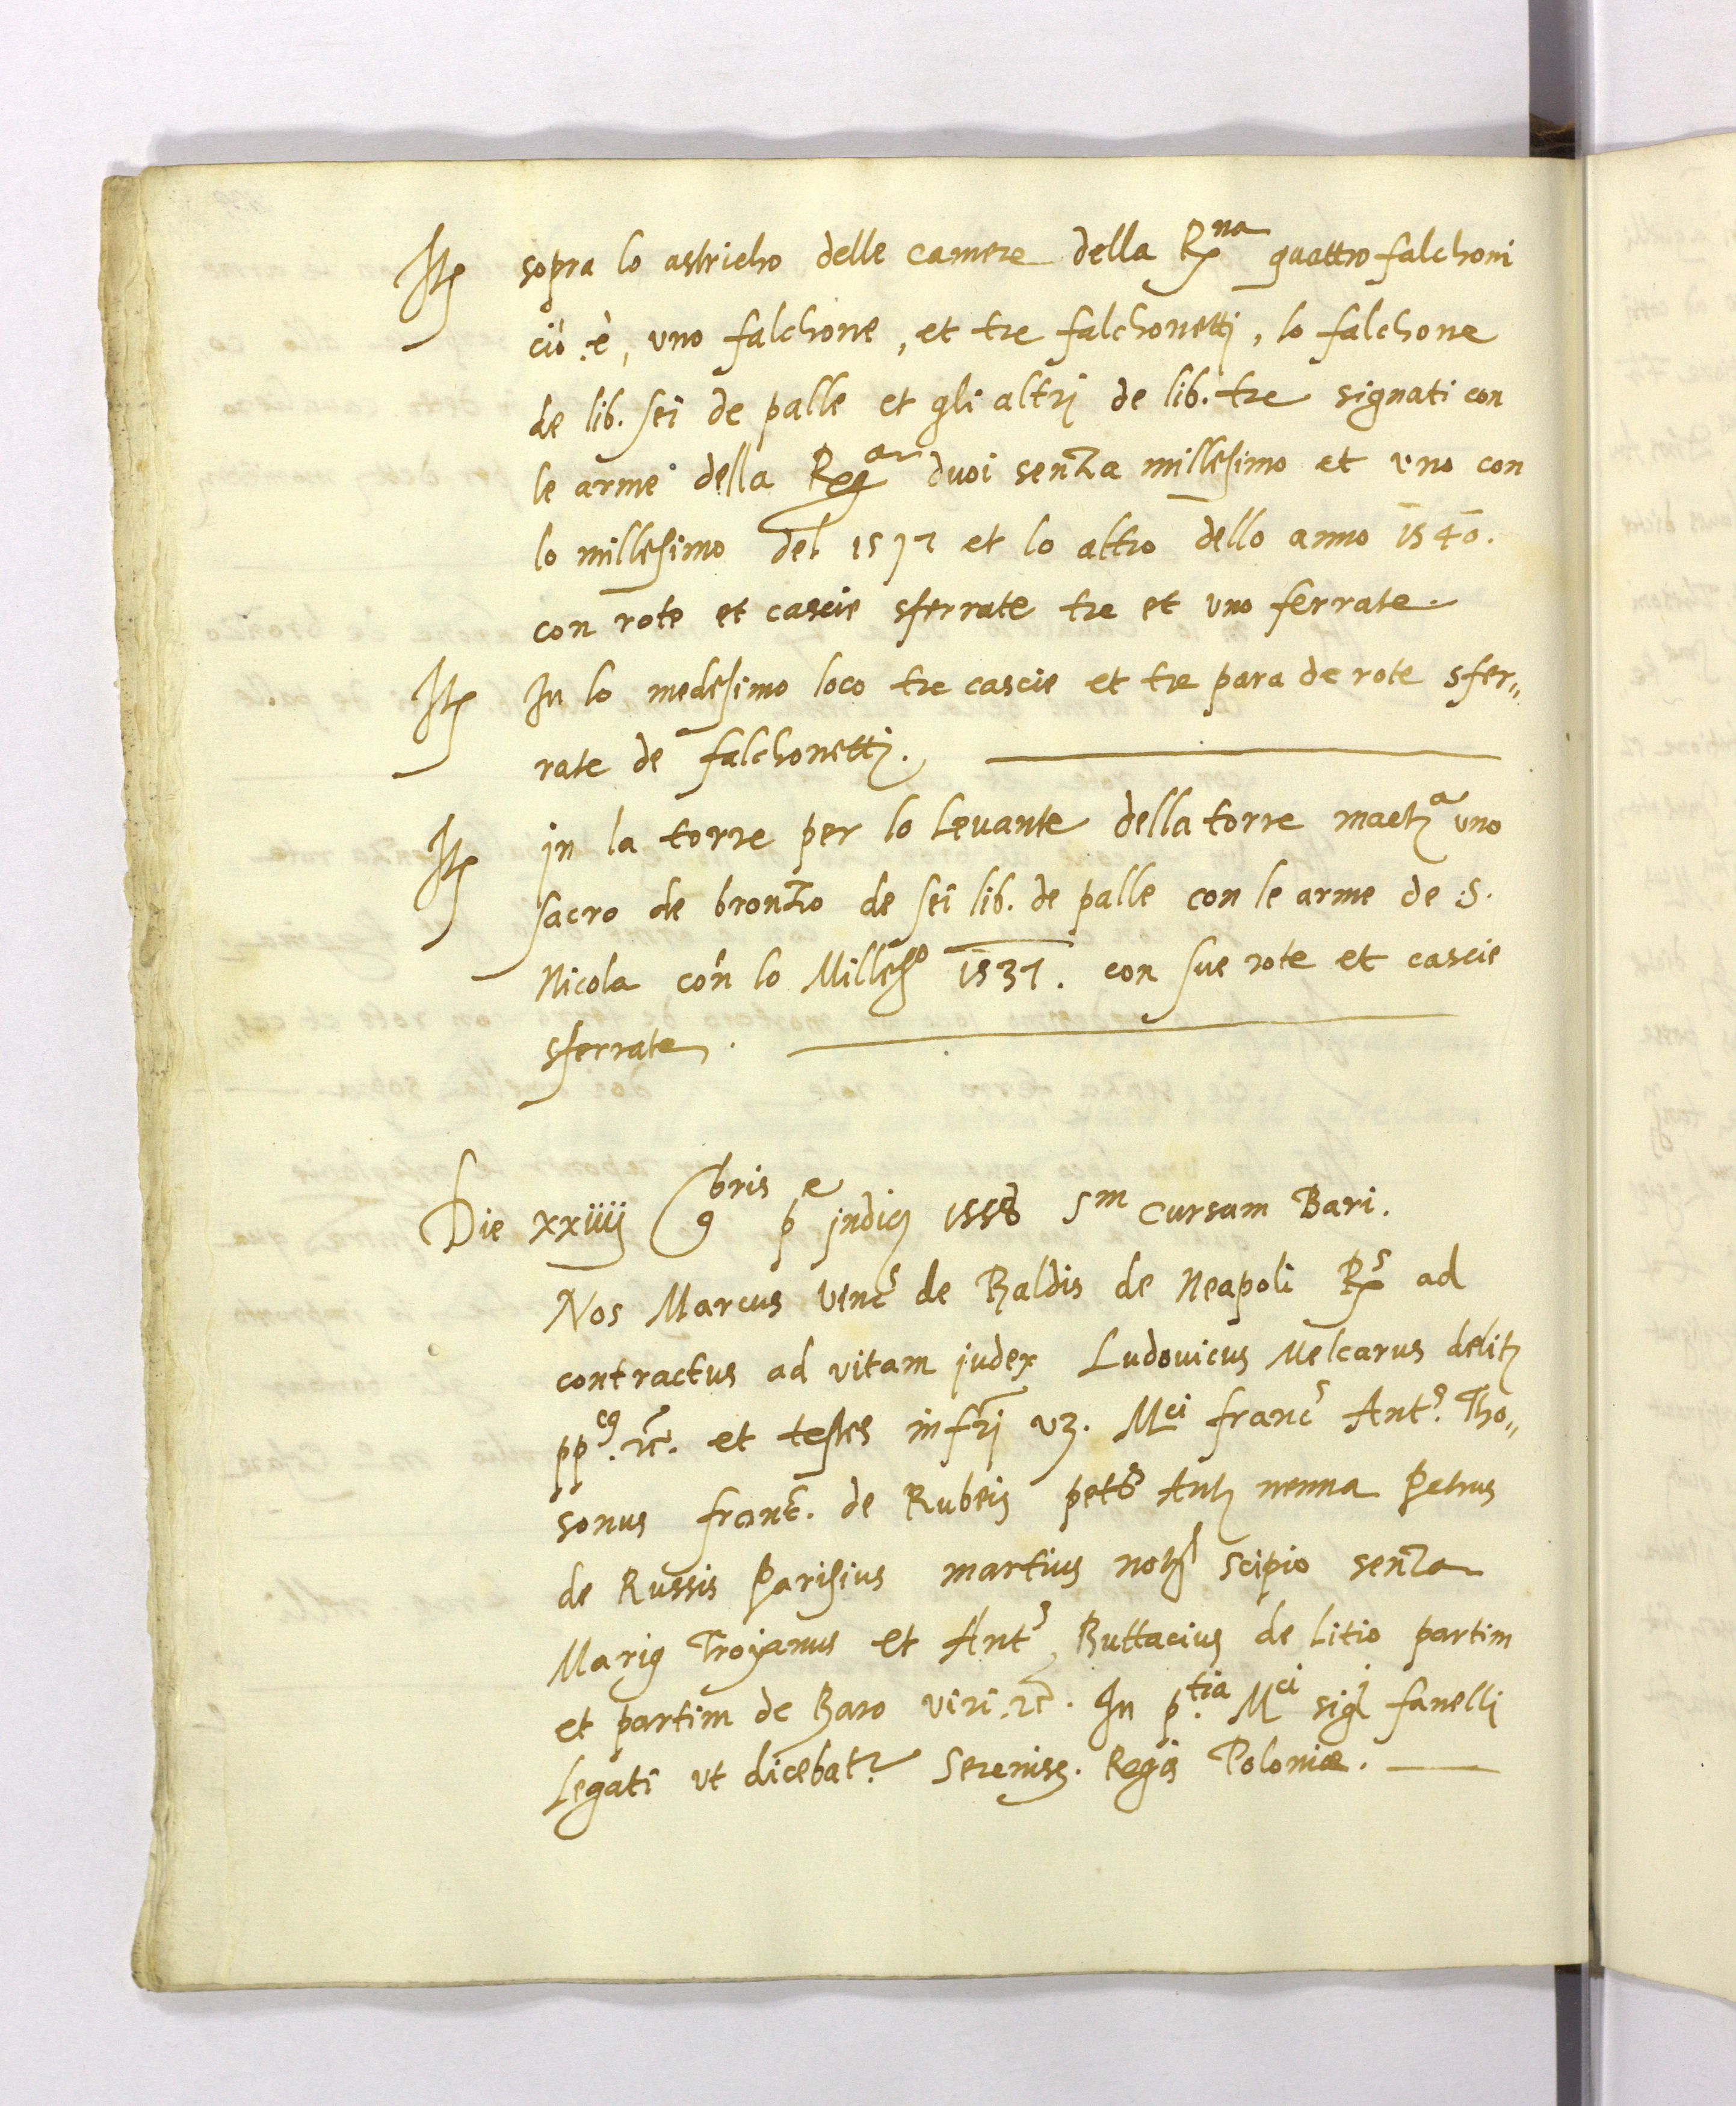 Itẽ sopra lo astricho delle camere della Rna quattro falchoni
ciò è, uno falchone, et tre falchonetti, lo falchone
de lib. sei de palle et gli altri de lib. tre signati con
le arme della Rega duoi senza millesimo et uno con
lo millesimo del et lo altro dello anno 1540.
con rote et cascie sferrate tre et uno ferrate.
Itẽ In lo medesimo loco tre cascie et tre para de rote sfer„
rate de falchonetti.
Itẽ in la torre per lo Levante della torre uno
sacro de bronzo de sei lib. de palle con le arme de S.
Nicola con lo Milleso 1537. con sue rote et cascie
sferrate.
Die xxiiij 9bris pe indics 1558 sm cursum Bari.
Nos Marcus Vencs de Baldis de Neapoli Rs ad
contractus ad vitam judex Ludovicus Melcarus
ppcus. rc. et testes infri vz. Mci francs Ants. Tho„
sonus franc. de Rubeis petrs Ant nenna Petrus
de Russis Parisius martius Scipio senza
Marius Troyanus et Ants Buttacius de litio partim
et partim de Baro viri. rc. In ptia Mci sigl fanelli
Legati ut dicebatr Sereniss. Regis Poloniæ.